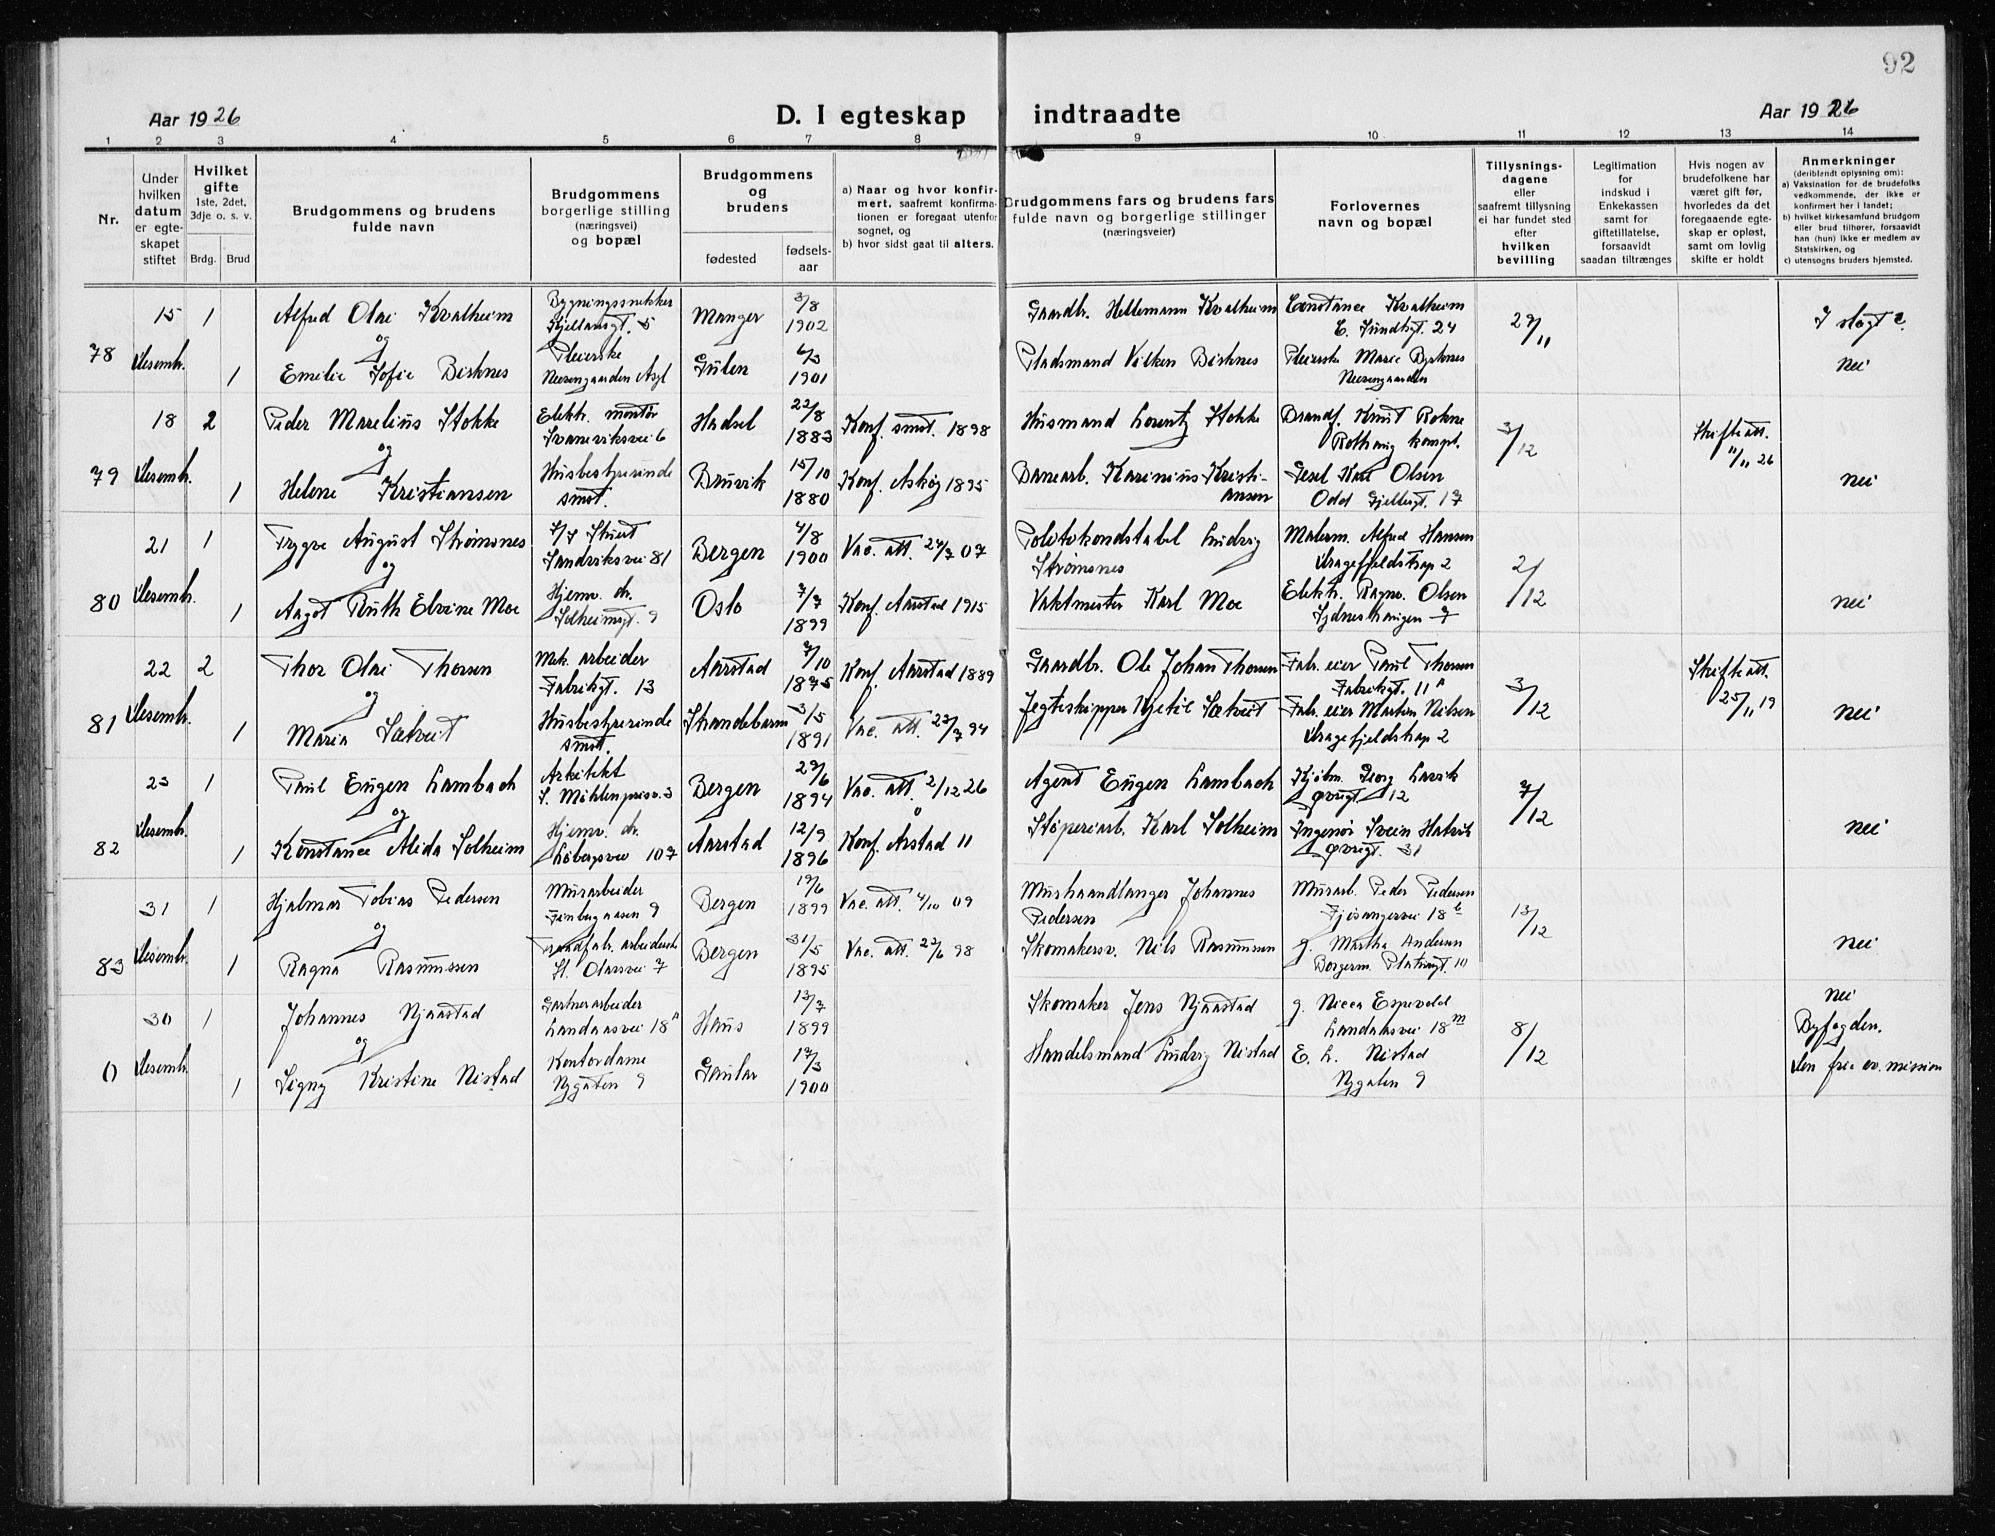 92
Aar 1926
D. I egteskap indtraadte
Aar 1926
1 2 3 4 5 6 7 8 9 10 11 12 13 14
Nr.
Under hvilken datum er egte-skapet stiftet
Hvilket gifte
1ste, 2det, 3dje o. s. v.
Brdg. Brud
Brudgommens og brudens fulde navn
Brudgommens borgerlige stilling (næringsvei) og bopæl
Brudgommens og brudens
fødested
fødsels-aar
a) Naar og hvor konfir-mert, saafremt konfirma-tionen er foregaat utenfor sognet, og
b) hvor sidst gaat til alters.
Brudgommens fars og brudens fars fulde navn og borgerlige stillinger (næringsveier)
Forlovernes navn og bopæl
Tillysnings-dagene eller saafremt tillysning ei har fundet sted efter hvilken bevilling
Legitimation for indskud i Enkekassen samt for giftetillatelse, forsaavidt saadan tiltrænges
Hvis nogen av brudefolkene har været gift før, hvorledes da det foregaaende egte-skap er opløst, samt om lovlig skifte er holdt
Anmerkninger
(deriblandt oplysning om):
a) Vaksination for de brudefolks vedkommende, der ikke er konfirmert her i landet;
b) hvilket kirkesamfund brudgom eller brud tilhører, forsaavidt han (hun) ikke er medlem av Statskirken, og
c) utensogns bruders hjemsted.
78
15 Desembr.
1
Alfred Olai Kvalheim
og
1
Emilie Sofie Birknes
Bygningssnekker
Kjellandsgt. 5
Pleierske
Neevengaarden Asyl
Manger 3/8 1902
Gulen 6/3 1901
Gaardbr. Hellemann Kvalheim
Pladsmand Vilken Birknes
Constance Kvalheim
E. Sundtsgt. 24
Pleierske Marie Byrknes
Neevengaarden
nei
79
18 Desembr.
2
Peder Marelius Stokke
og
1
Helene Kristiansen
Elektr. montør
Svaneviksvei 6
Husbestyrerinde
smst.
Hadsel 22/8 1883
Bruvik 15/10 1880
Konf. smst. 1898
Konf. Askøy 1895
Husmand Lorentz Stokke
Banearb. Karinius Kristi-
ansen
Brandf. Knut Rokne
Rothaug kompl.
Gesel Karl Olsen
Odd Gjellsgt. 17
3/12
Skifteatt.
11/11 26
nei
80
21 Desembr.
1
Trygve August Strømsnes
og
1
Aagot Ruth Elvine Moe
Sandviksvei 81
Hjemv. dr.
Solheimsgt. 9
Bergen 4/8 1900
Oslo 7/7 1899
Vac. att. 24/7 07
Konf. Aarstad 1915
Politikonstabel Ludvig
Strømsnes
Vaktmester Karl Moe
Malerm. Alfred Hansen
Dragefjeldstrap 2
Elektr. Ragnv. Olsen
Sydneshaugen 7
2/12
nei
81
22 Desembr.
2
Thor Olai Thorsen
og
1
Maria Sætveit
Mek. arbeider
Fabrikgt. 13
Husbestyrerinde
smst.
Aarstad 7/10 1875
Strandebarm 3/5 1891
Konf. Aarstad 1889
Vac. att. 23/7 94
Gaardbr. Ole Johan Thorsen
Jegteskipper Kjetil Sætveit
Fabr. eier Paul Thorsen
Fabrikgt. 11 a
Fabr. eier Martin Nilsen
Dragefjeldstrap 2
3/12
Skifteatt.
25/11 19
nei
82
23 Desembr.
1
Paul Eugen Lambach
og
1
Konstance Alida Solheim
Arkitekt
S. Møhlenprisv. 3
Hjemv. dr.
Løbergsvei 107
Bergen 27/6 1894
Aarstad 12/9 1896
Vac. att. 2/12 26
Konf. Årstad 11
Agent Eugen Lambach
Støperiarb. Karl Solheim
Kjøbm. Georg Larvik
Øvregt. 12
Ingeniør Svein Hatvik
Øvregt. 31
7/12
nei
83
31 Desembr.
1
Hjalmar Tobias Pedersen
og
1
Ragna Rasmussen
Murarbeider
Finbergaasen 9
Traadfabr. arbeiderske
St. Olavsvei 7
Bergen 19/6 1899
Bergen 31/5 1895
Vac. att. 4/10 09
Vac. att. 22/6 98
Murhaandlanger Johannes
Pedersen
Skomakersv. Nils Rasmussen
Murarb. Peder Pedersen
Fjøsangervei 18 b
g. Martha Andersen
13/12
nei
0
30 Desembr.
1
Johannes Njaastad
og
1
Signy Kristine Nistad
Gartnerarbeider
Landaasvei 18 a
Kontordame
Nygaten 9
Haus 13/7 1899
Gaular 17/3 1900
Skomaker Jens Njaastad
Handelsmand Ludvig Nistad
g. Nicca Espevold
Landaasvei 18 m
E. L. Nistad
Nygaten 9
8/12
nei
Byfogden.
Den frie ev. mission